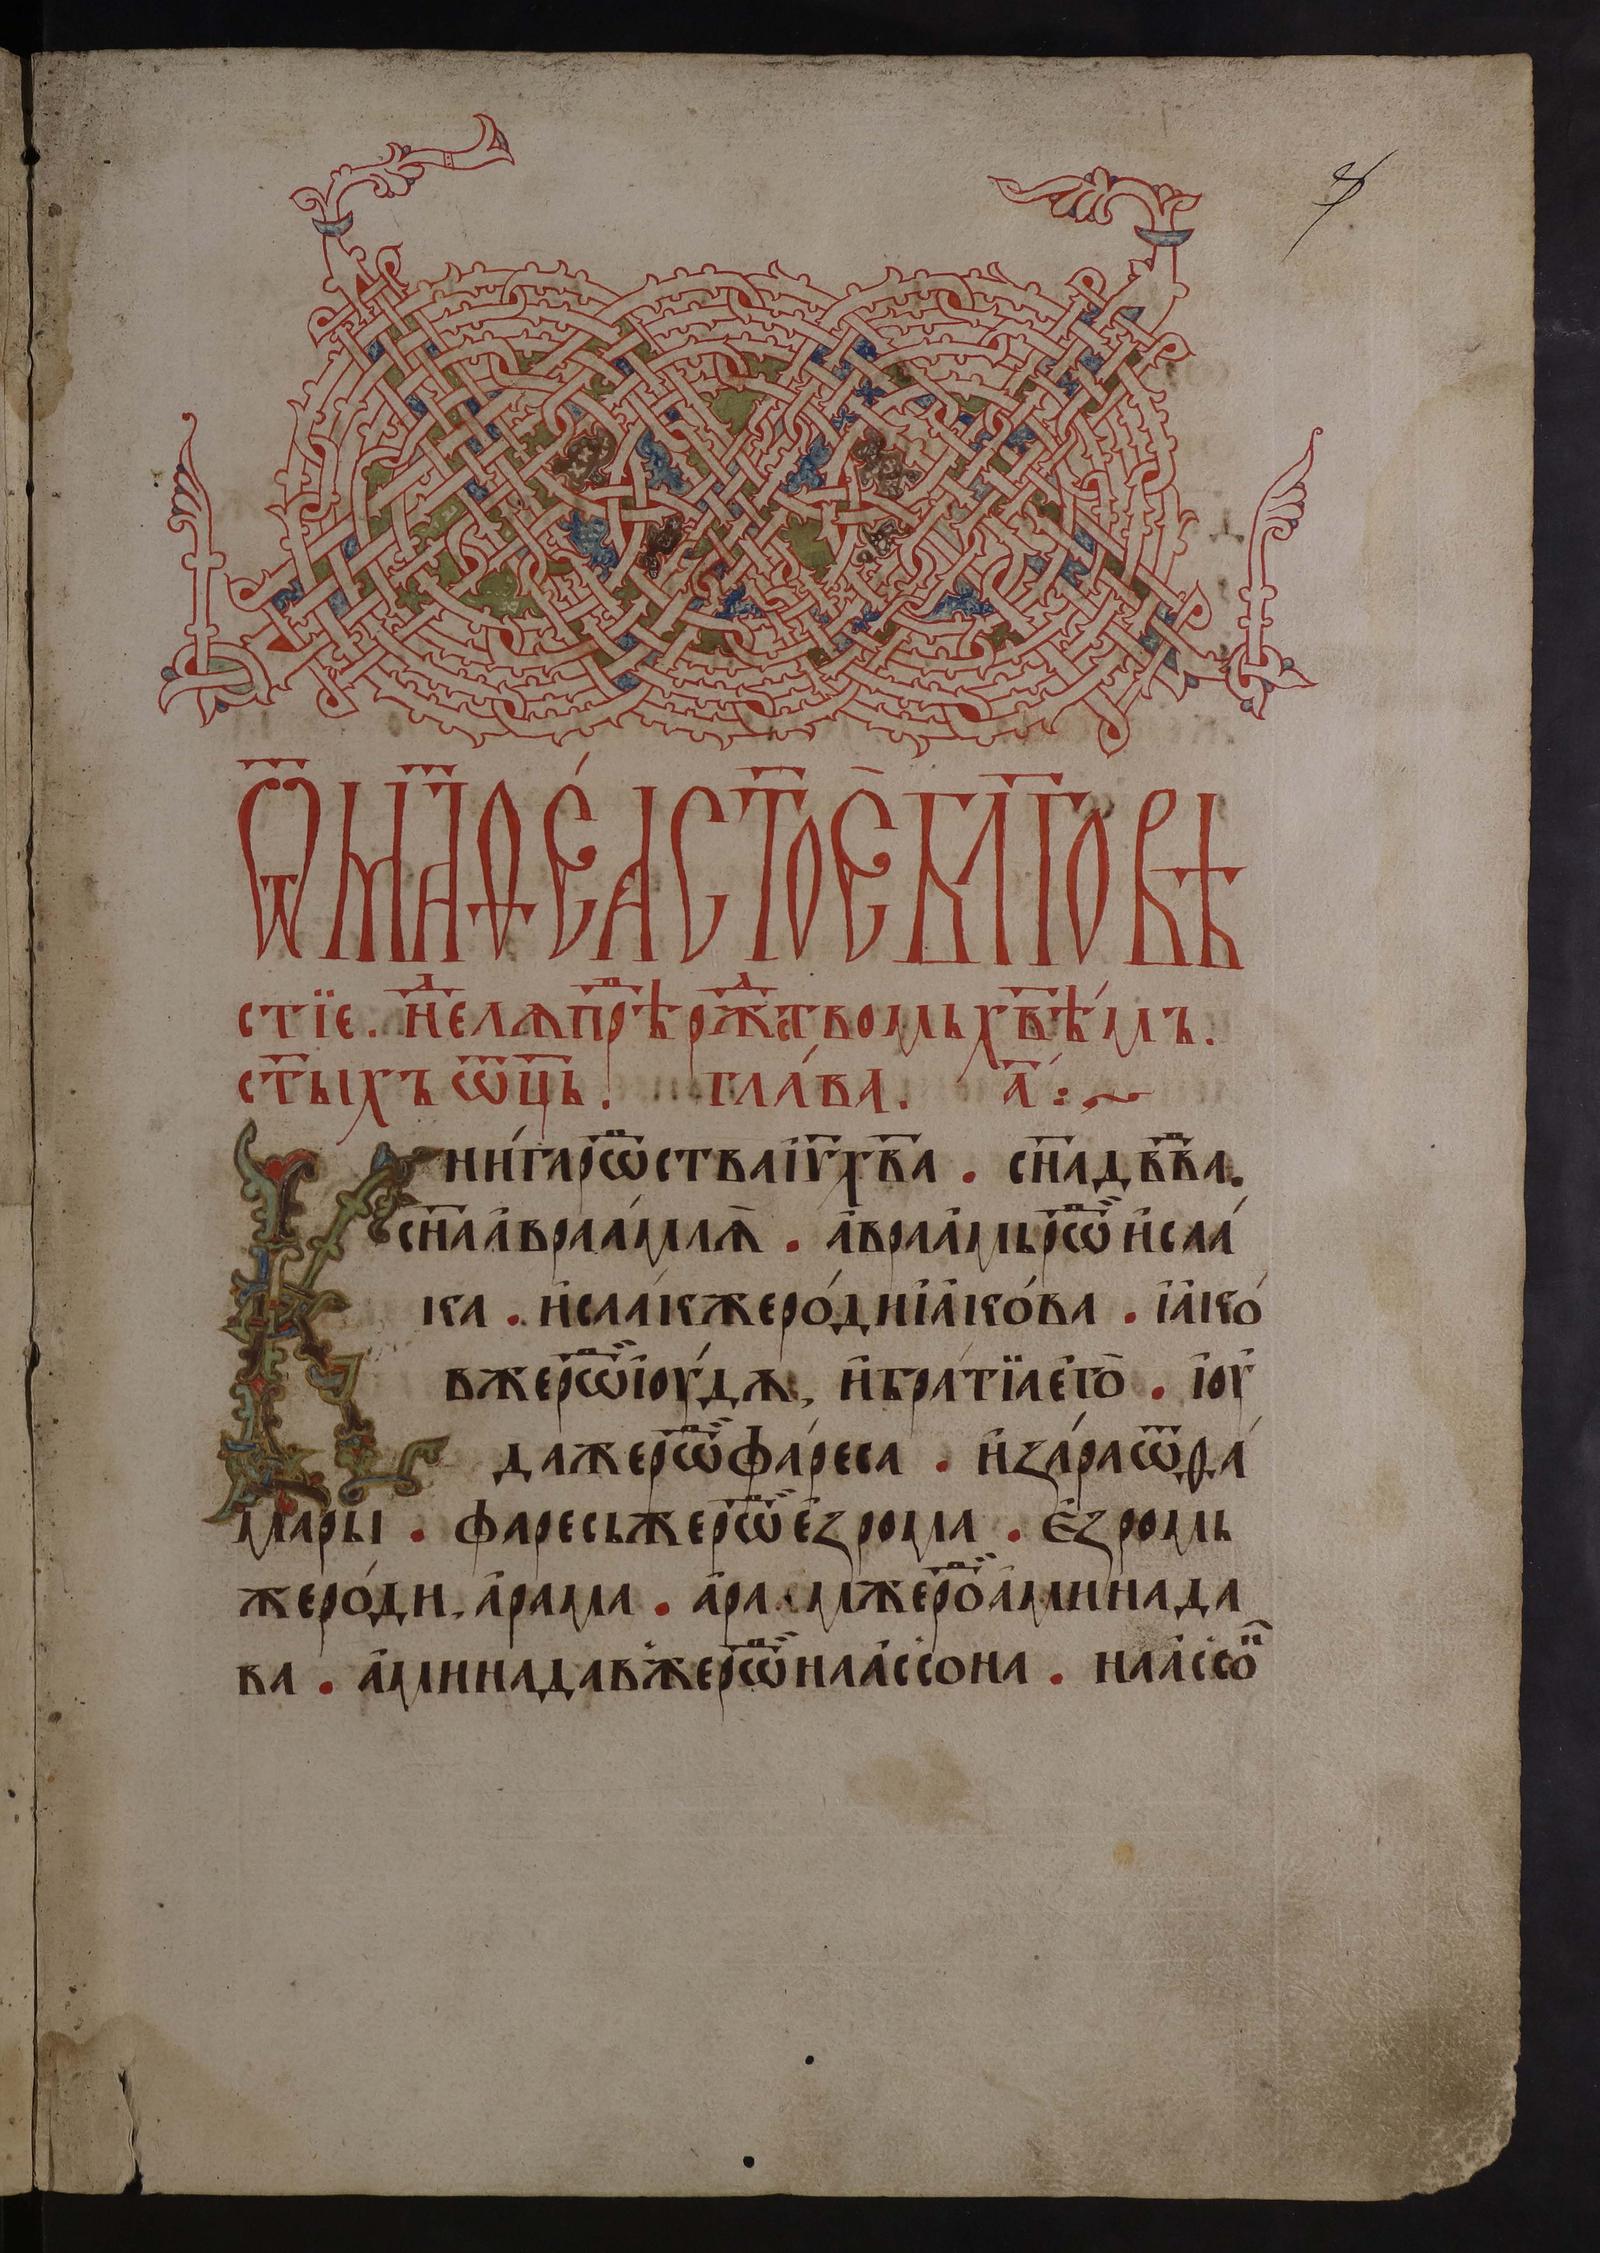 Ѿ мат҃ѳе́а ст҃оѐ бл҃говѣ
стїе. нⷣ҇елѧ прⷣ҇ѣ ржⷭ҇твомь хв҃ѣ́мъ.
ст҃ыхъ ѡц҃ь. гла́ва. а҃ :~
Кни́га рѡⷤства іу҃ хв҃а . сн҃а дв҃ва.
сн҃а авраа́млѧ̀ . а҆враа҆мь рѡⷣ и҆саа́
ка . и҆саа́к же ро́дн і҆а҆ко́ва . і҆а҆ко́
в же рѡⷣ і҆оу́дѧ, и҆ бра́тїа є҆го̀ . і҆оу
да же рѡⷣ фа́реса . и҆ за́ра ѿ ѳа́
мары . фаресь же рѡⷣ е҆зрома . е҆зромь
же ро́ди. а҆рама . а҆рамже роⷣ а҆минада
ва . а҆минадав же рѡⷣ наа҆ссона . наа҆ссоⷩ